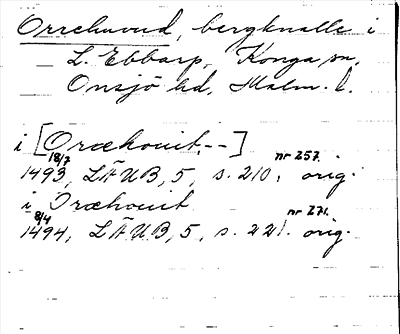 Orrehuvud, bergknalle i
L. Ebbarp, Konga sn,
Onsjö hd, Malm. l.
i [Oræhouit--]
18/7 nr 257.
1493, LÄUB, 5, s. 210. orig.
i Oræhouit
8/4 nr 271.
1494, LÄUB, 5, s. 221. orig.